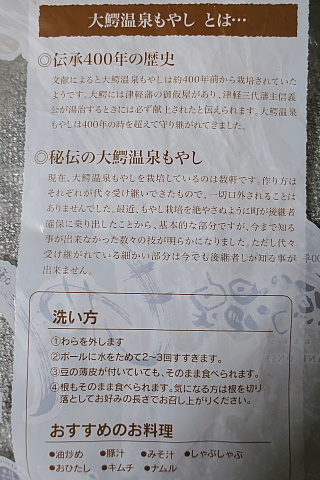 大鰐温泉もやし とは…
◎伝承400年の歴史
文献によると大鰐温泉もやしは約400年前から栽培されていた
ようです。大鰐には津軽藩の御仮屋があり、津軽三代藩主信義
公が湯治するときには必ず献上されたと伝えられます。大鰐温泉
もやしは400年の時を超えて守り継がれてきました。
◎秘伝の大鰐温泉もやし
現在、大鰐温泉もやしを栽培しているのは数軒です。作り方は
それぞれが代々受け継いできたもので、一切口外されることは
ありませんでした。最近、もやし栽培を絶やさぬように町が後継者
確保に乗り出したことから、基本的な部分ですが、今まで知る
事が出来なかった数々の技が明らかになりました。ただし代々
受け継がれている細かい部分は今でも後継者しか知る事が
出来ません。
洗い方
①わらを外します
②ボールに水をためて2〜3回すすぎます。
③豆の薄皮が付いていても、そのまま食べられます。
④根もそのまま食べられます。気になる方は根を切り
落としてお好みの長さでお召し上がりください。
おすすめのお料理
●油炒め ●豚汁 ●みそ汁 ●しゃぶしゃぶ
●おひたし ●キムチ ●ナムル